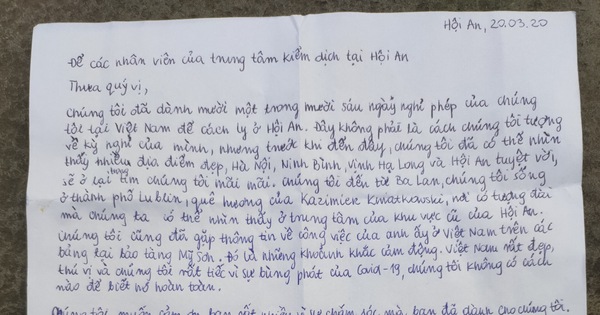 Hội An, 20.03.20
Để các nhân viên của trung tâm kiểm dịch tại Hội An
Thưa quý vị,
Chúng tôi đã dành mười một trong mười sáu ngày nghỉ phép của chúng
tôi tại Việt Nam để cách ly ở Hội An. Đây không phải là cách chúng tôi tượng
về kỳ nghỉ của mình, nhưng trước khi đến đây, chúng tôi đã có thể nhìn
thấy nhiều địa điểm đẹp, Hà Nội, Ninh Bình, Vịnh Hạ Long và Hội An tuyệt vời,
sẽ ở lại trong tim chúng tôi mãi mãi. Chúng tôi đến từ Ba Lan, chúng tôi sống
ở thành phố Lublin, quê hương của Kazimier Kwiatkowski, nơi có tượng đài
mà chúng ta có thể nhìn thấy ở trung tâm của khu vực cũ của Hội An.
Chúng tôi cũng đã gặp thông tin về công việc của anh ấy ở Việt Nam trên các
bảng tại bảo tàng Mỹ Sơn. Đó là những khoảnh khắc cảm động. Việt Nam rất đẹp,
thú vị và chúng tôi rất tiếc vì sự bùng phát của Covid-19, chúng tôi không có cách
nào để biết nó hoàn toàn.
Chúng tôi muốn cảm ơn bạn rất nhiều vì sự chăm sóc mà bạn đã dành cho chúng tôi.